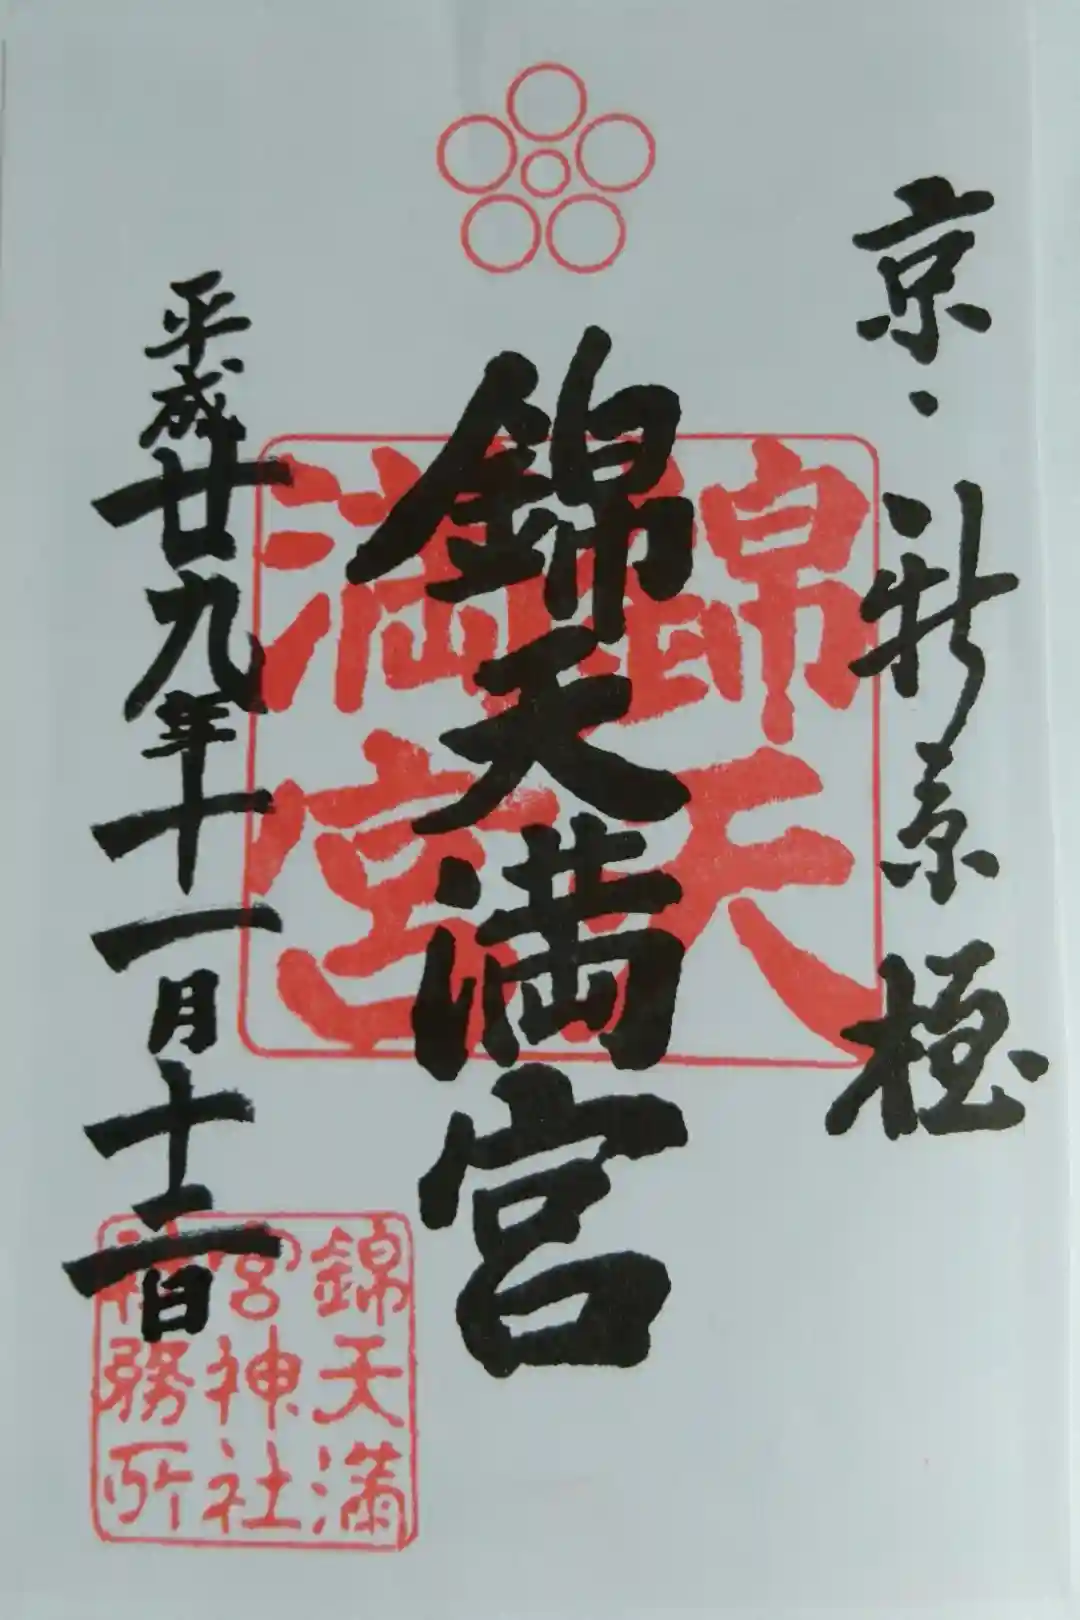 京・新京極
錦天満宮
平成廿九年十一月十二日
錦天
満宮
錦天満
宮神社
社務所